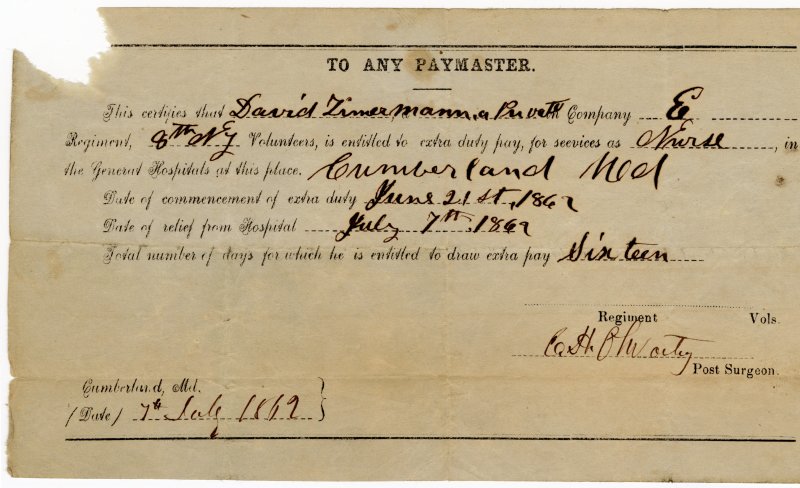 TO ANY PAYMASTER.
This certifies that David Zimermann, a Company E
Regiment, 8th NY Volunteers, is entitled to extra duty pay, for seevices as Nurse, in
the General Hospitals at this place. Cumberland Md
Date of commencement of extra duty June 21st, 1862
Date of relief from Hospital July 7th, 1862
Total number of days for which he is entitled to draw extra pay Sixteen
Regiment Vols.
Post Surgeon.
Cumberland, Md.
(Date) 7th July 1862